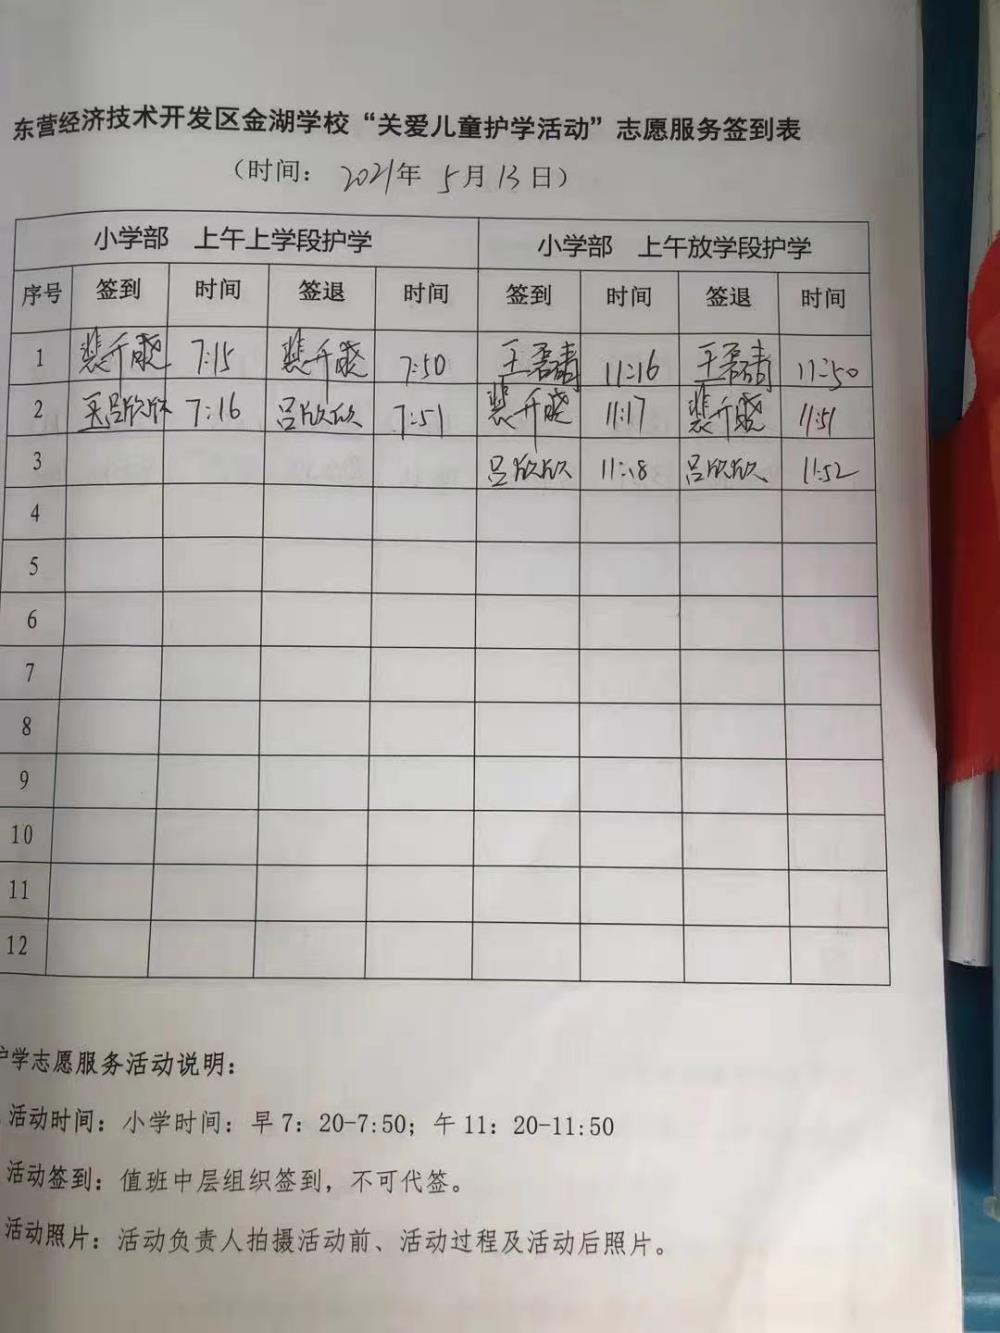 东营经济技术开发区金湖学校“关爱儿童护学活动”志愿服务签到表
（时间： 2021年 5月 13日）
小学部 上午上学段护学 小学部 上午放学段护学
序号 签到 时间 签退 时间 签到 时间 签退 时间
1 裴升晓 7:15 裴升晓 7:50 王 11:16 王 11:50
2 吕欣欣 7:16 吕欣欣 7:51 裴升晓 11:17 裴升晓 11:51
3 吕欣欣 11:18 吕欣欣 11:52
4
5
6
7
8
9
10
11
12
护学志愿服务活动说明：
活动时间：小学时间：早7：20-7:50；午11：20-11:50
活动签到：值班中层组织签到，不可代签。
活动照片：活动负责人拍摄活动前、活动过程及活动后照片。